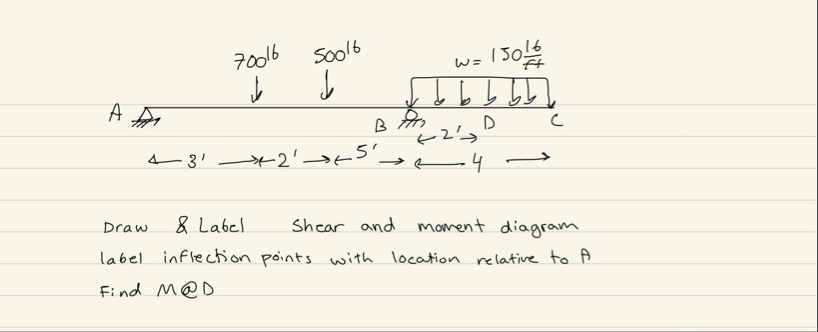 700lb 500lb w= 150 lb/ft
A B D C
2'
3' 2' 5' 4
Draw & Label Shear and moment diagram
label inflection points with location relative to A
Find M@D